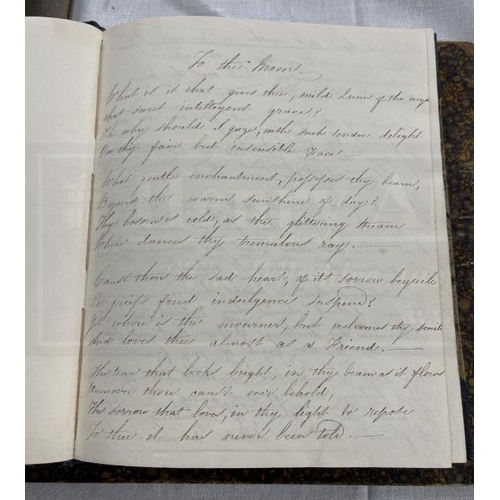 To the Moon
What is it that gives thee, mild Queen of the night
that sweet intelligent grace?
Or why should I gaze, with such tender delight
On thy fair but insensible Face
What gentle enchantment, possesses thy beam,
Beyond the warm sunshine of day?
Thy bosom is cold, as the glittering stream
Where dances thy tremulous ray.
Canst thou the sad heart, of its sorrow beguile
Or griefs fond indulgence suspend?
Yet where is the mourner, but welcomes thy smile
And loves thee almost as a Friend.
The tear that looks bright, in thy beam as it flows
Unmoved thou canst behold,
The sorrow that loves, in thy light to repose
To thee it has never been told.